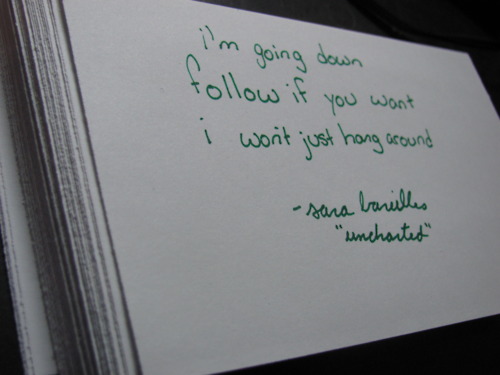 i'm going down
follow if you want
i won't just hang around
- sara bareilles
"uncharted"